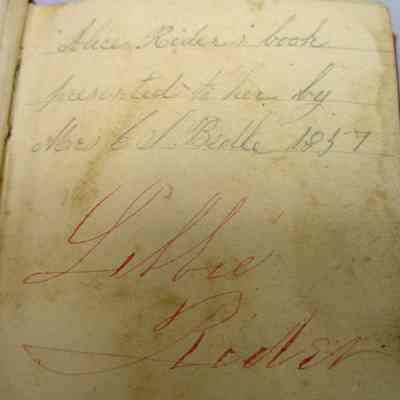 Alice Rider's book
presented to her by
Mr C S. Beelle 1857
Libbie
Rider